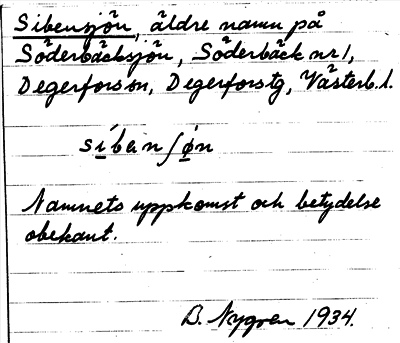 Sibensjön, äldre namn på
Söderbäcksjön, Söderbäck nr 1,
Degerfors sn, Degerfors tg, Västerb. l.
síbenʃøn
Namnets uppkomst och betydelse
obekant.
B. Nygren 1934.